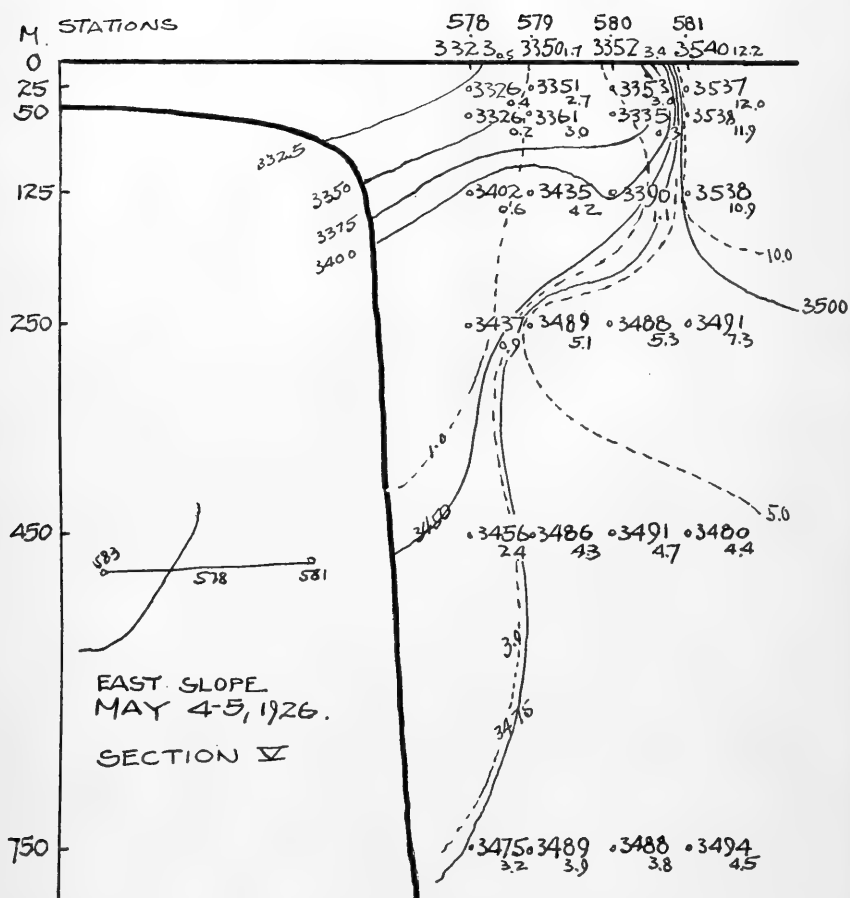 M. STATIONS 578 579 580 581
3323 0.5 3350 1.7 3352 3.4 3540 12.2
0
25 3326 0.4 3351 2.7 3353 3.0 3537 12.0
50 3326 0.2 3361 3.0 3335 3538 11.9
3325
3350
125 3402 0.6 3435 4.2 3390 3538 10.9
3375
3400
10.0
3500
250 3437 0.9 3489 5.1 3488 5.3 3491 7.3
1.0
3450
5.0
450 3456 2.4 3486 4.3 3491 4.7 3480 4.4
583 578 581
3.0
3475
EAST SLOPE
MAY 4-5, 1926.
SECTION V
750 3475 3.2 3489 3.9 3488 3.8 3494 4.5